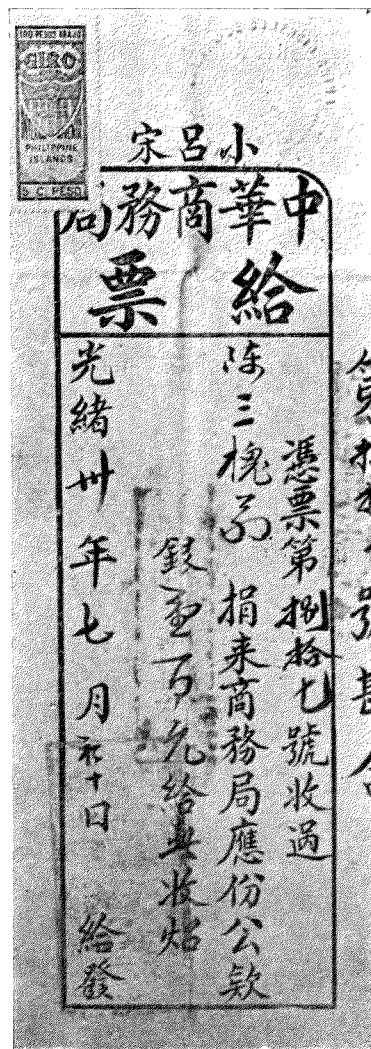 GIRO
PHILIPPINE
ISLANDS
小呂宋
中華商務局
給票
憑票第捌拾七號收過
陳三槐翁 捐来商務局應份公欵
銀壹百元給無收炤
光緒卅年七月初十日 給發